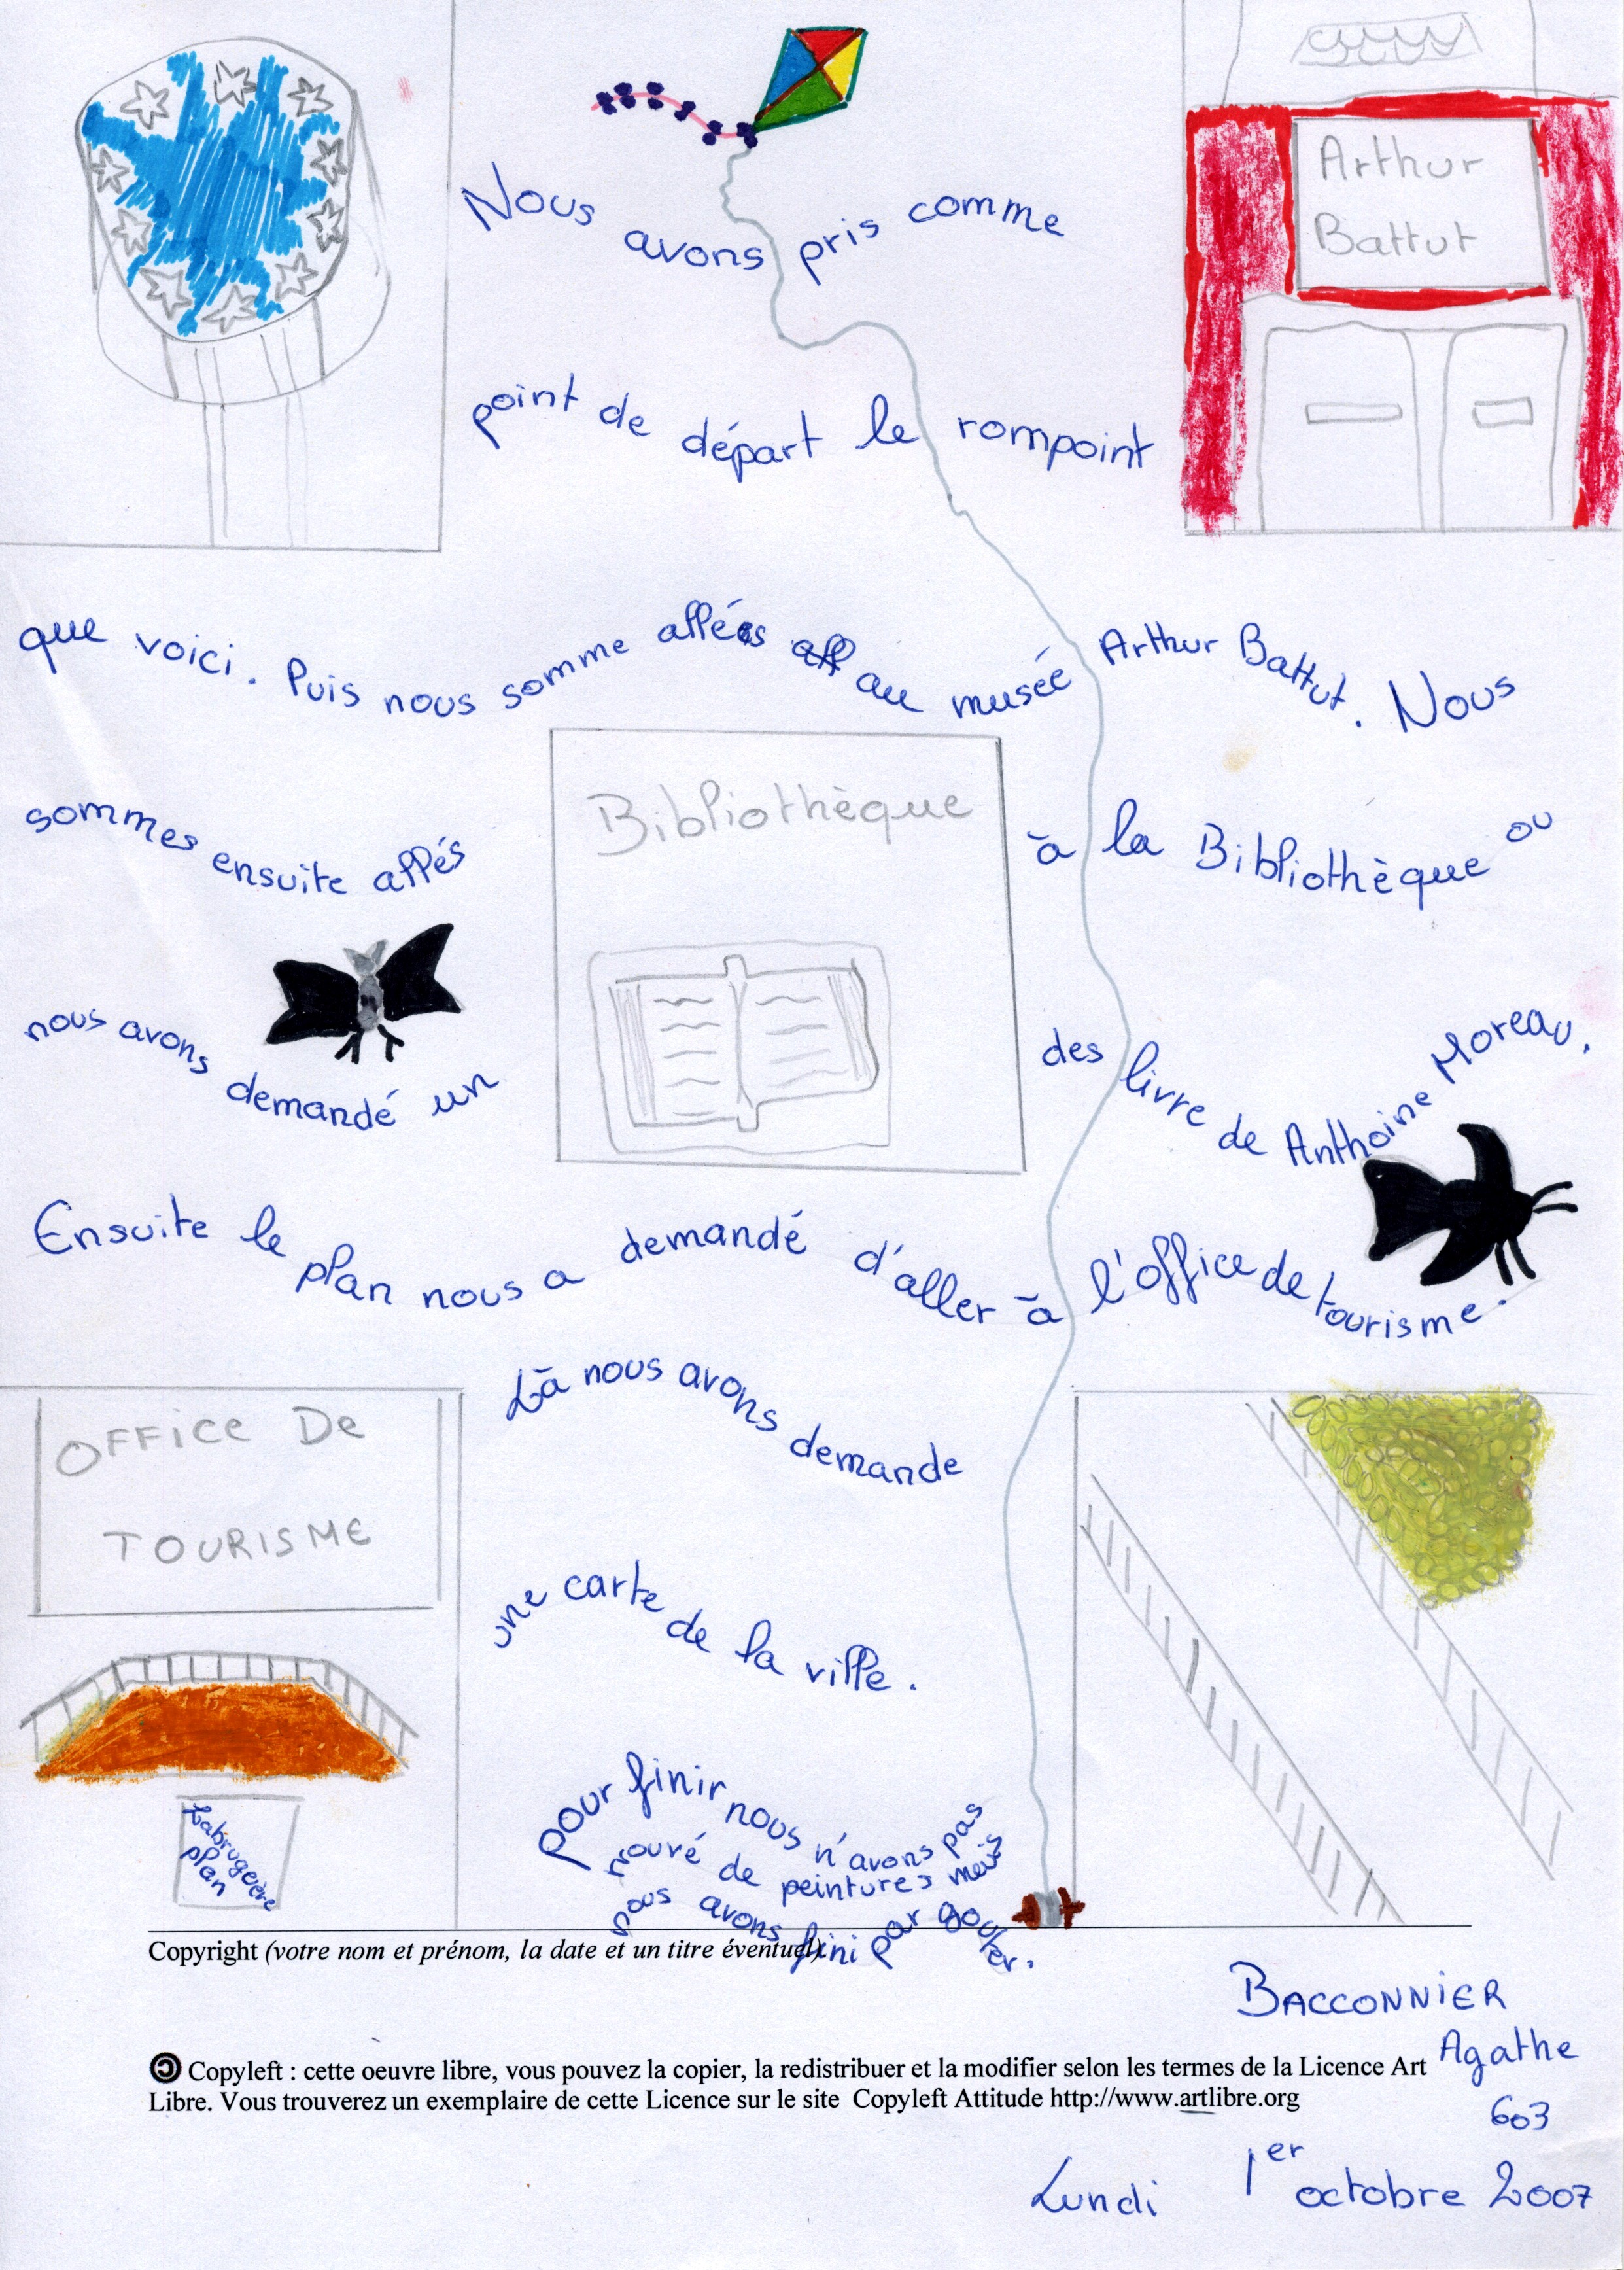 Arthur
Battut
Nous avons pris comme
point de départ le rompoint
que voici. Puis nous somme allés au musée Arthur Battut. Nous
sommes ensuite allés
Bibliothèque
à la Bibliothèque ou
nous avons demandé un
des livre de Anthoine Moreau.
Ensuite le plan nous a demandé d'aller à l'office de tourisme.
OFFICE DE
TOURISME
Là nous avons demande
une carte de la ville.
Labrugeère
plan
pour finir nous n'avons pas
trouvé de peintures mais
nous avons fini par gouter.
Copyright (votre nom et prénom, la date et un titre éventuel).
BACCONNIER
Agathe
603
Copyleft : cette oeuvre libre, vous pouvez la copier, la redistribuer et la modifier selon les termes de la Licence Art
Libre. Vous trouverez un exemplaire de cette Licence sur le site Copyleft Attitude http://www.artlibre.org
Lundi 1er octobre 2007